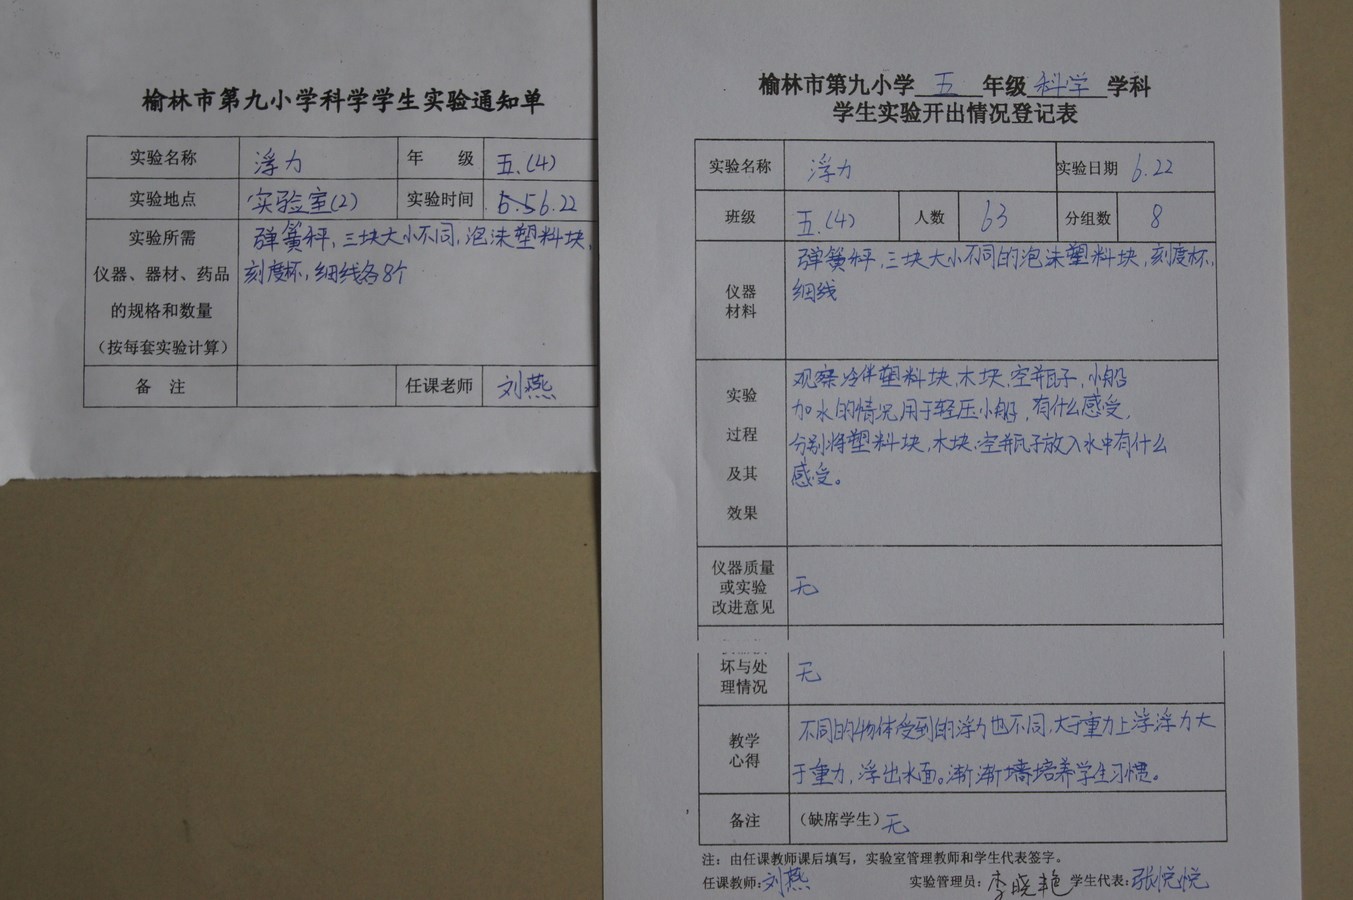 榆林市第九小学科学学生实验通知单
实验名称 浮力 年 级 五.(4)
实验地点 实验室(2) 实验时间 6.22
实验所需
仪器、器材、药品
的规格和数量
（按每套实验计算）
弹簧秤,三块大小不同,泡沫塑料块,
刻度杯,细线各8个
备 注 任课老师 刘燕
榆林市第九小学 五 年级 科学 学科
学生实验开出情况登记表
实验名称 浮力 实验日期 6.22
班级 五.(4) 人数 63 分组数 8
仪器
材料
弹簧秤,三块大小不同的泡沫塑料块,刻度杯,
细线
实验
过程
及其
效果
观察 塑料块,木块,空瓶子,小船
加水的情况,用手轻压小船,有什么感受,
分别将塑料块,木块,空瓶子放入水中有什么
感受。
仪器质量
或实验
改进意见
无
坏与处
理情况
无
教学
心得
不同的物体受到的浮力也不同,大于重力上浮浮力大
于重力,浮出水面。渐渐 培养学生习惯。
备注 （缺席学生）无
注：由任课教师课后填写，实验室管理教师和学生代表签字。
任课教师:刘燕 实验管理员:李晓艳 学生代表:张悦悦